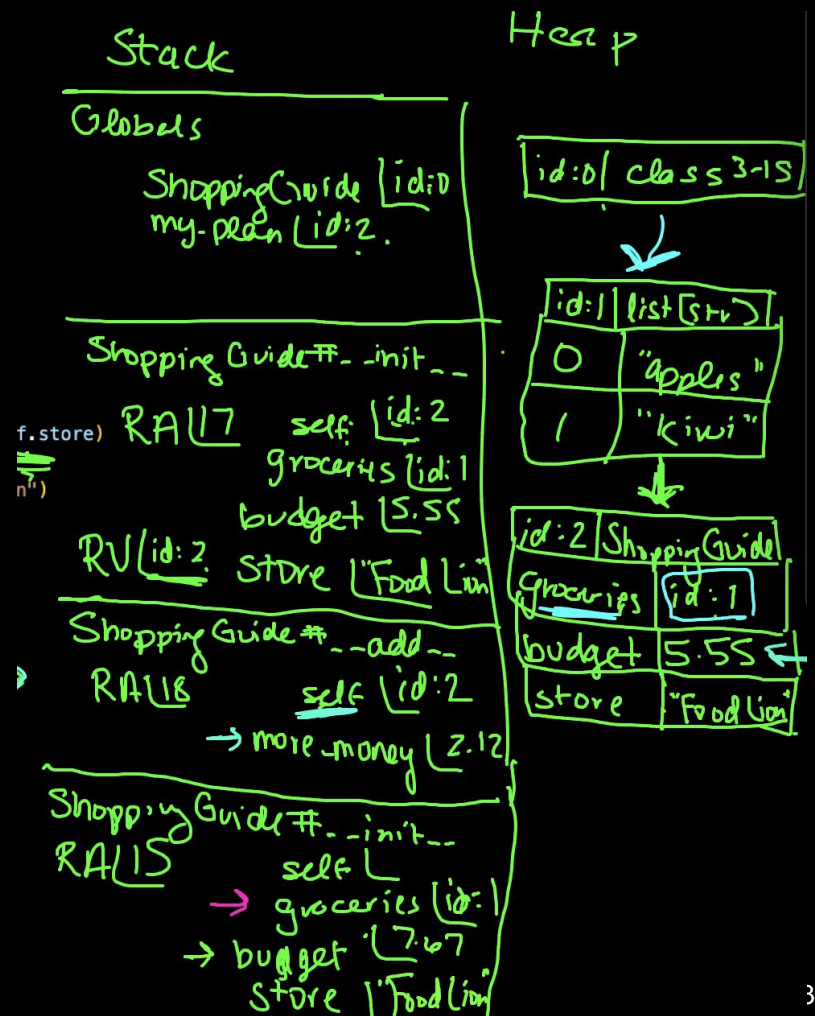 Stack
Heap
Globals
ShoppingGuide id:0
my-plan id:2.
Shopping Guide#__init__
f.store)
n")
RA 17
self: id:2
groceries id:1
budget 5.55
RV id:2
store "Food Lion"
Shopping Guide#__add__
RA 18
self id:2
→ more_money 2.12
Shopping Guide#.__init__
RA 15
self
→ groceries id:1
→ budget 7.67
store "Food Lion"
id:0 class 3-15
id:1 list[str]
0 "apples"
1 "kiwi"
id:2 Shopping Guide
groceries id:1
budget 5.55
store "Food Lion"
3